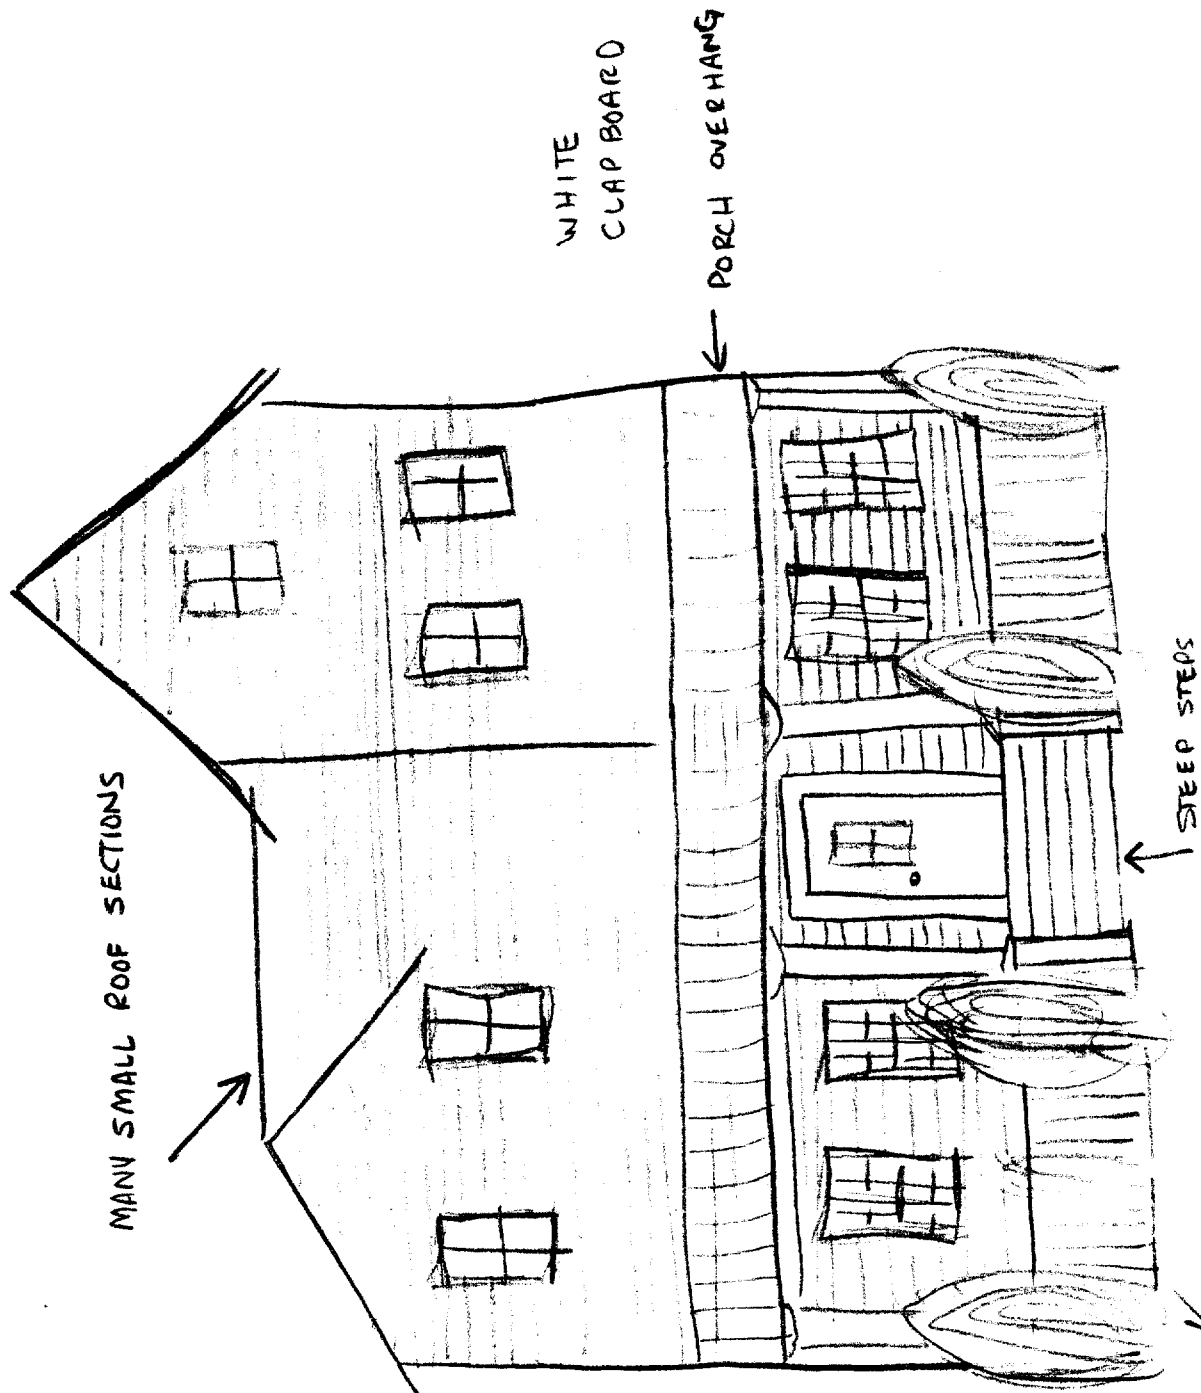 MANY SMALL ROOF SECTIONS
WHITE
CLAPBOARD
PORCH OVERHANG
STEEP STEPS